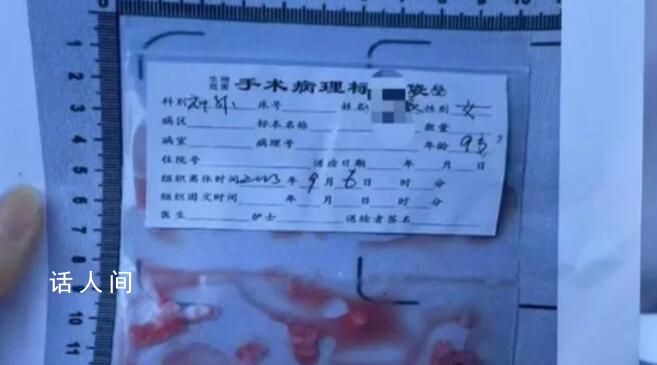 生物
危害 手术病理标
科别 床号 姓名 性别 女
病区 标本名称 数量
病室 病理号 年龄 9岁
住院号 送检日期 年 月 日
组织离体时间 2023 年 9 月 6 日 时 分
组织固定时间 年 月 日 时 分
医生 护士 送检者签名
话人间
1
2
3
4
5
6
7
8
9
10
11